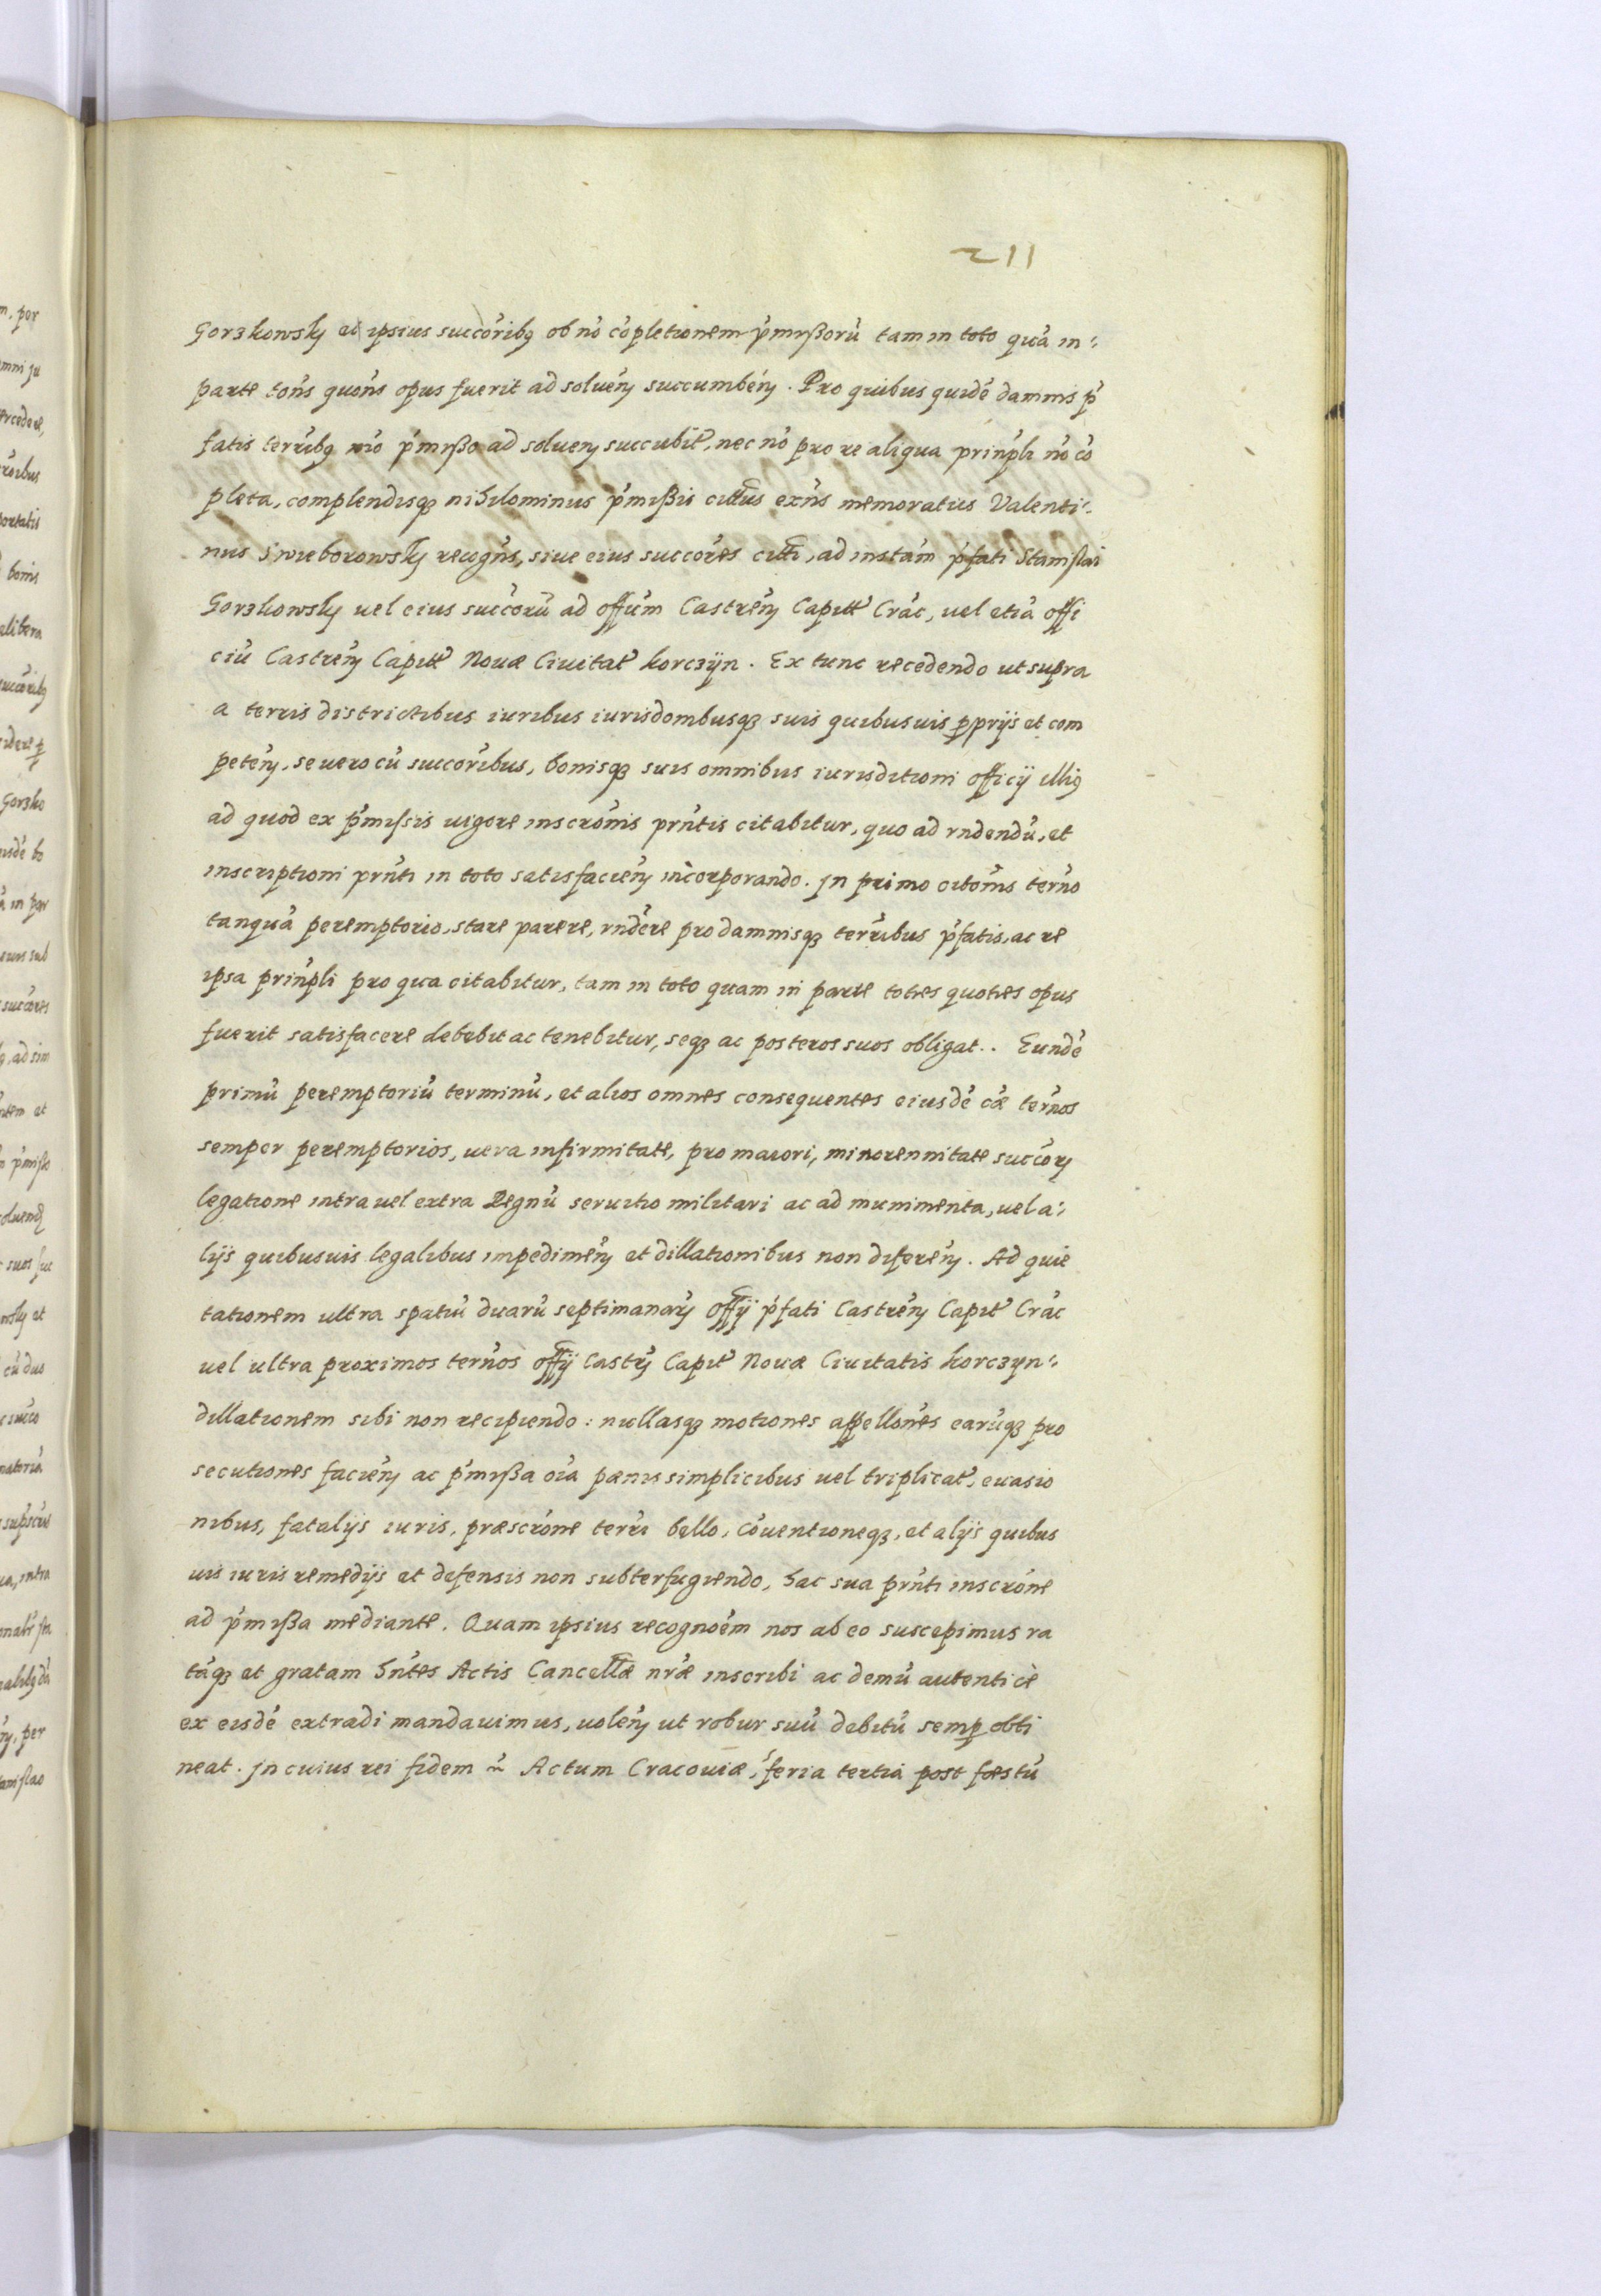 211
Gorzkowsky et ipsius succóribꝫ ob nó cópletionem p̓mißorũ tam in toto quá in-
parte tońs quońs opus fuerit ad soluéń succumbéń. Pro quibus quidé damnis p̓
fatis terribꝫ p̓mißo ad soluen succubit, nec nó pro re aliqua prinpli nó có
pleta, complendisqꝫ nihilominus p̓mißis exńs memoratus Valenti-
nus Swieborowsky recogńs, siue eius succóres citti, ad instám p̓fati Stanislai
Gorzkowsky uel eius succorũ ad offúm Castréń Capitt Crác, uel etiá offi
ciũ Castréń Capitt Nouæ Ciuitat Korczÿn. Ex tunc recedendo ut supra
a terris districtibus iuribus iurisdombusqꝫ suis quibusuis ꝓprijs et com
peteń, se uero cũ succoribus, bonisqꝫ suis omnibus iurisditioni officij illiꝫ
ad quod ex p̓missis uigore inscrónis prńtis citabitur, quo ad rndendũ, et
inscriptioni prńti in toto satisfacień incorporando. In primo citońis terńo
tanquá peremptorio, stare parere, rndére pro damnisqꝫ terribus p̓fatis, ac re
ipsa prinpli pro qua citabitur, tam in toto quam in parte toties quoties opus
fuerit satisfacere debebit ac tenebitur, seqꝫ ac posteros suos obligat.. Eundé
primũ peremptoriũ terminũ, et alios omnes consequentes eiusdé cáe terńos
semper peremptorios, uera infirmitate, pro maiori, minorennitate succorꝫ
legatione intra uel extra Regnũ seruitio militari ac ad munimenta, uel a-
lijs quibusuis legalibus impedimeń et dillationibus non difereń. Ad quie
tationem ultra spatiũ duarũ septimanarꝫ offÿ p̓fati Castréń Capit Crác
uel ultra proximos terńos offÿ Castrꝫ Capit Nouæ Ciuitatis Korczyn-
dillationem sibi non recipiendo: nullasqꝫ motiones appellońes earũqꝫ pro
secutiones facień ac p̓mißa oía pænis simplicibus uel triplicat, euasio
nibus, fatalijs iuris, præscróne terrí bello, cóuentioneqꝫ, et alijs quibus
uis iuris remedijs et defensis non subterfugiendo, hac sua prńti inscróne
ad p̓mißa mediante. Quam ipsius recognoém nos ab eo suscepimus ra
táqꝫ et gratam hńtes Actis Cancellæ nræ inscribi ac demũ autenticè
ex eisdé extradi mandauimus, uoleń ut robur suũ debitũ semꝑ obti
neat. In cuius rei fidem ~ Actum Cracouiæ, feria tertia post festũ